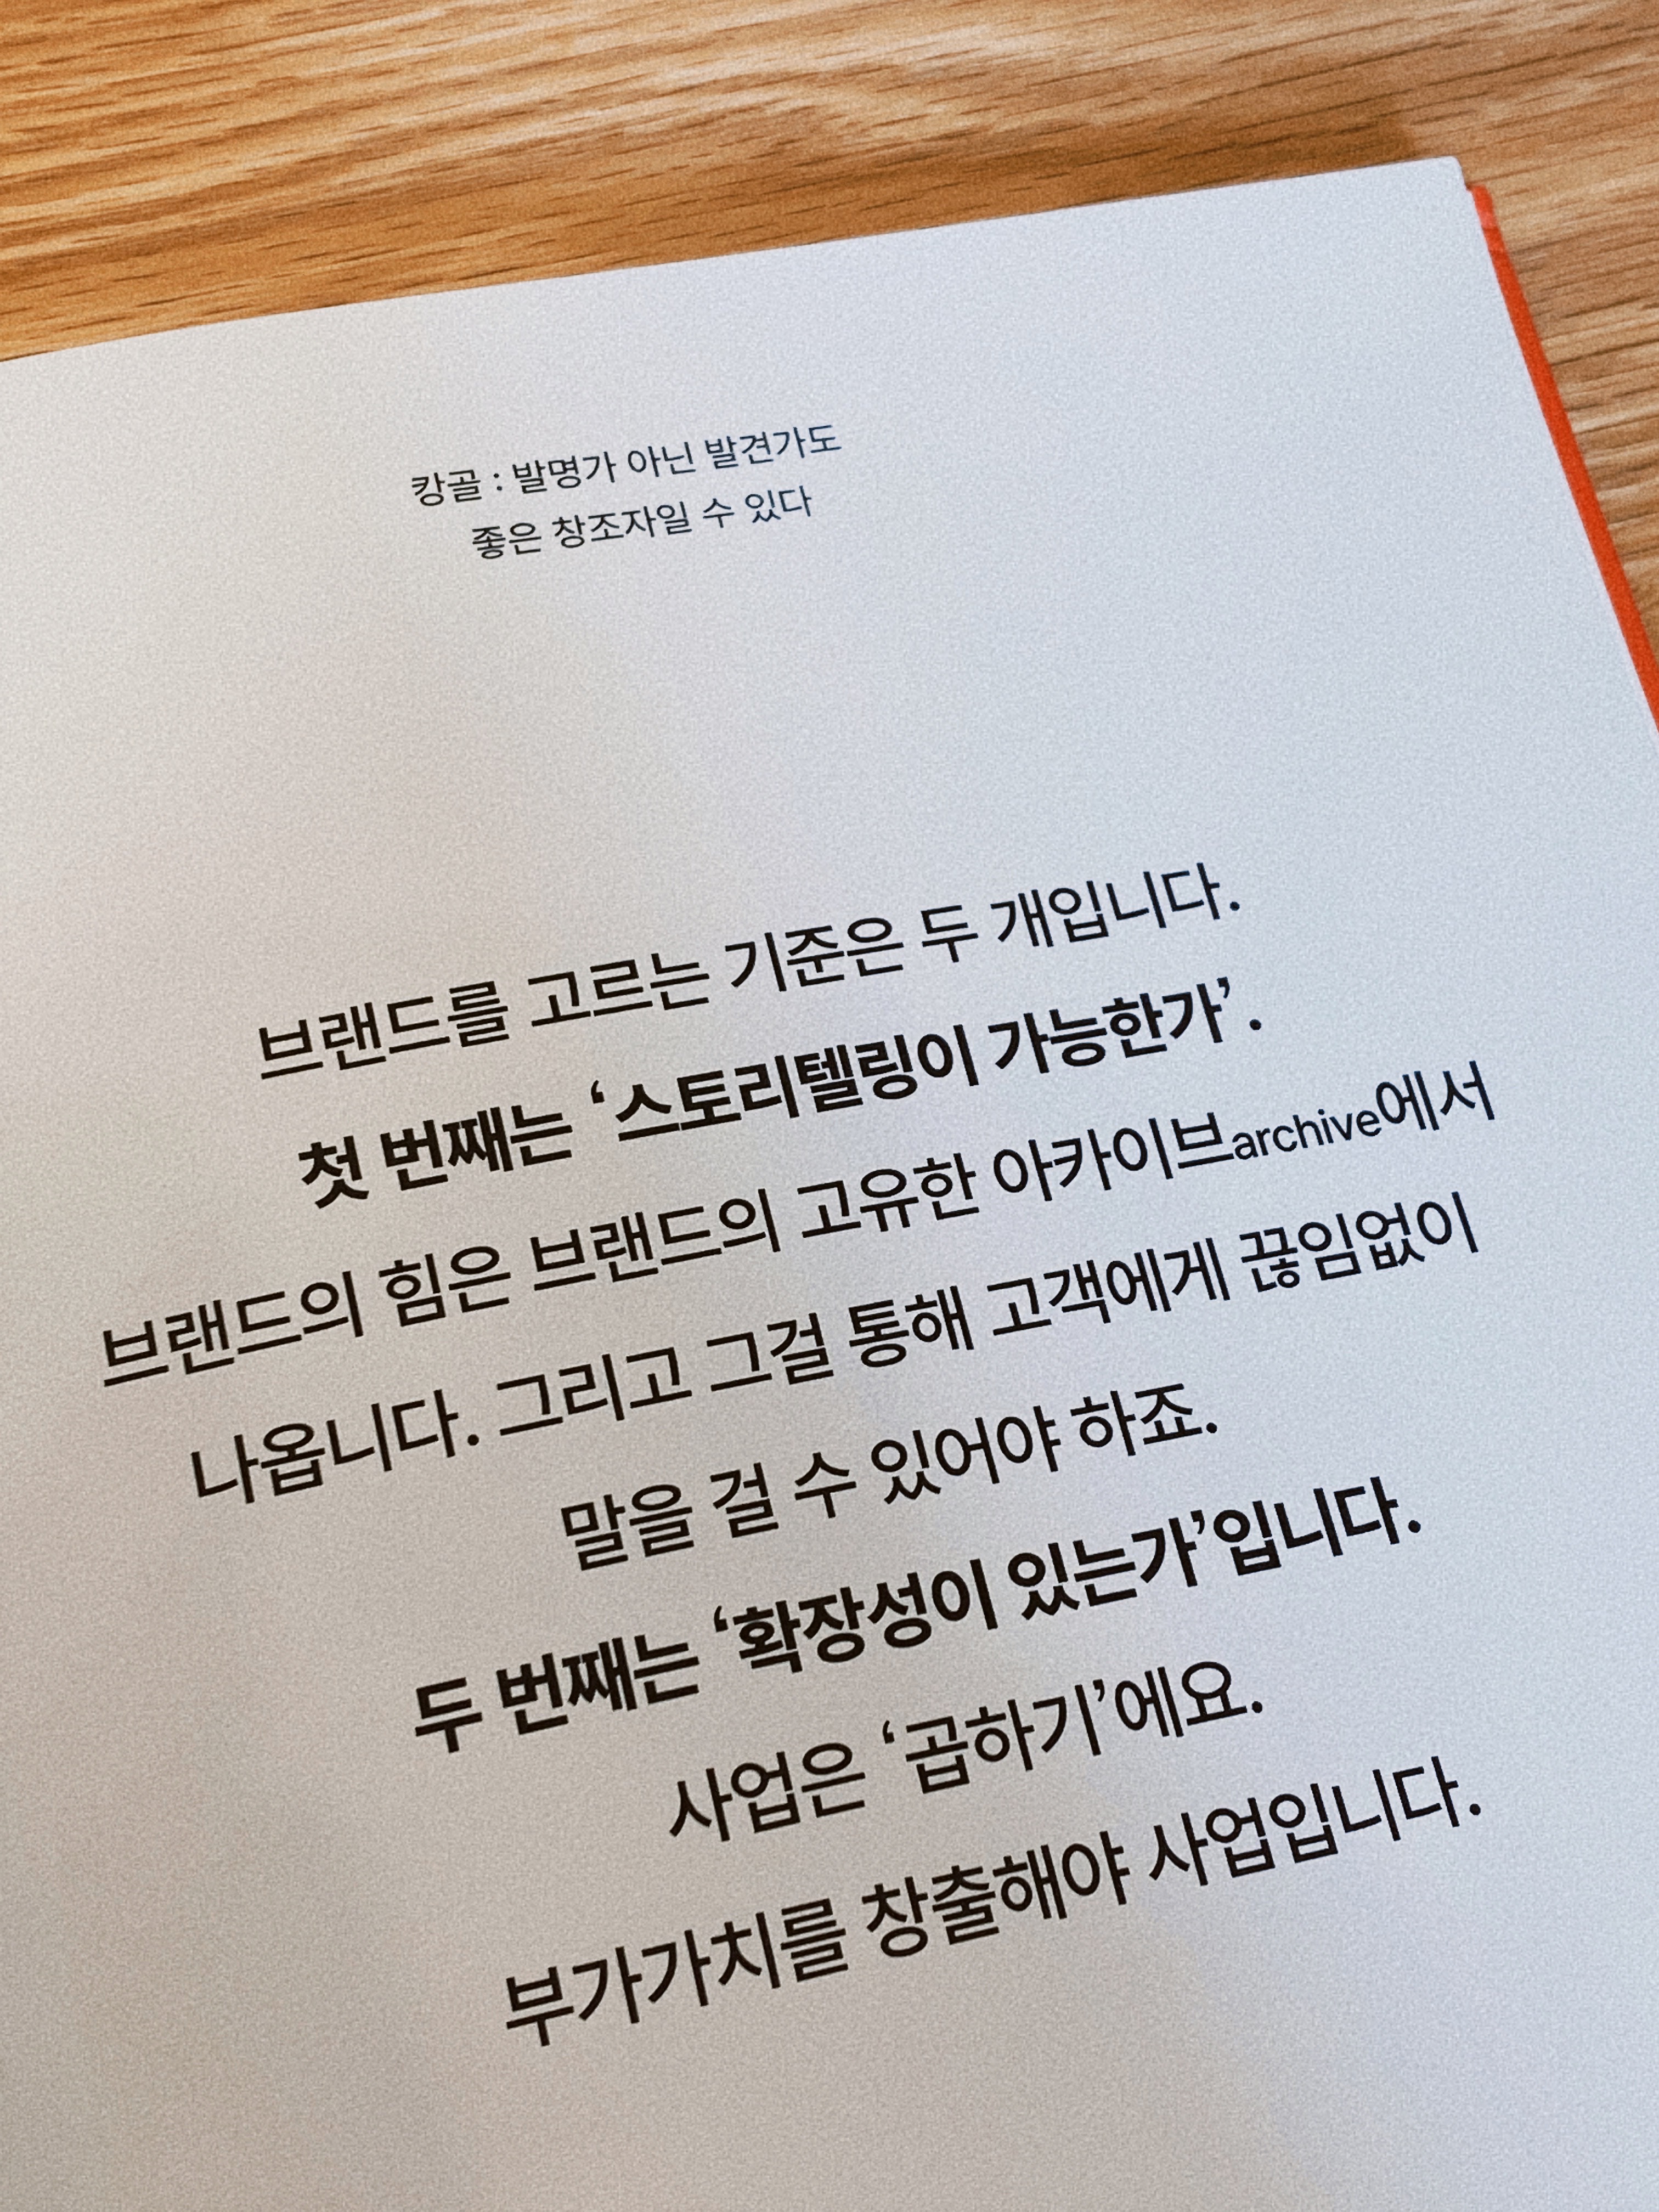 캉골 : 발명가 아닌 발견가도
좋은 창조자일 수 있다
브랜드를 고르는 기준은 두 개입니다.
첫 번째는 ‘스토리텔링이 가능한가’.
브랜드의 힘은 브랜드의 고유한 아카이브archive에서
나옵니다. 그리고 그걸 통해 고객에게 끊임없이
말을 걸 수 있어야 하죠.
두 번째는 ‘확장성이 있는가’입니다.
사업은 ‘곱하기’에요.
부가가치를 창출해야 사업입니다.